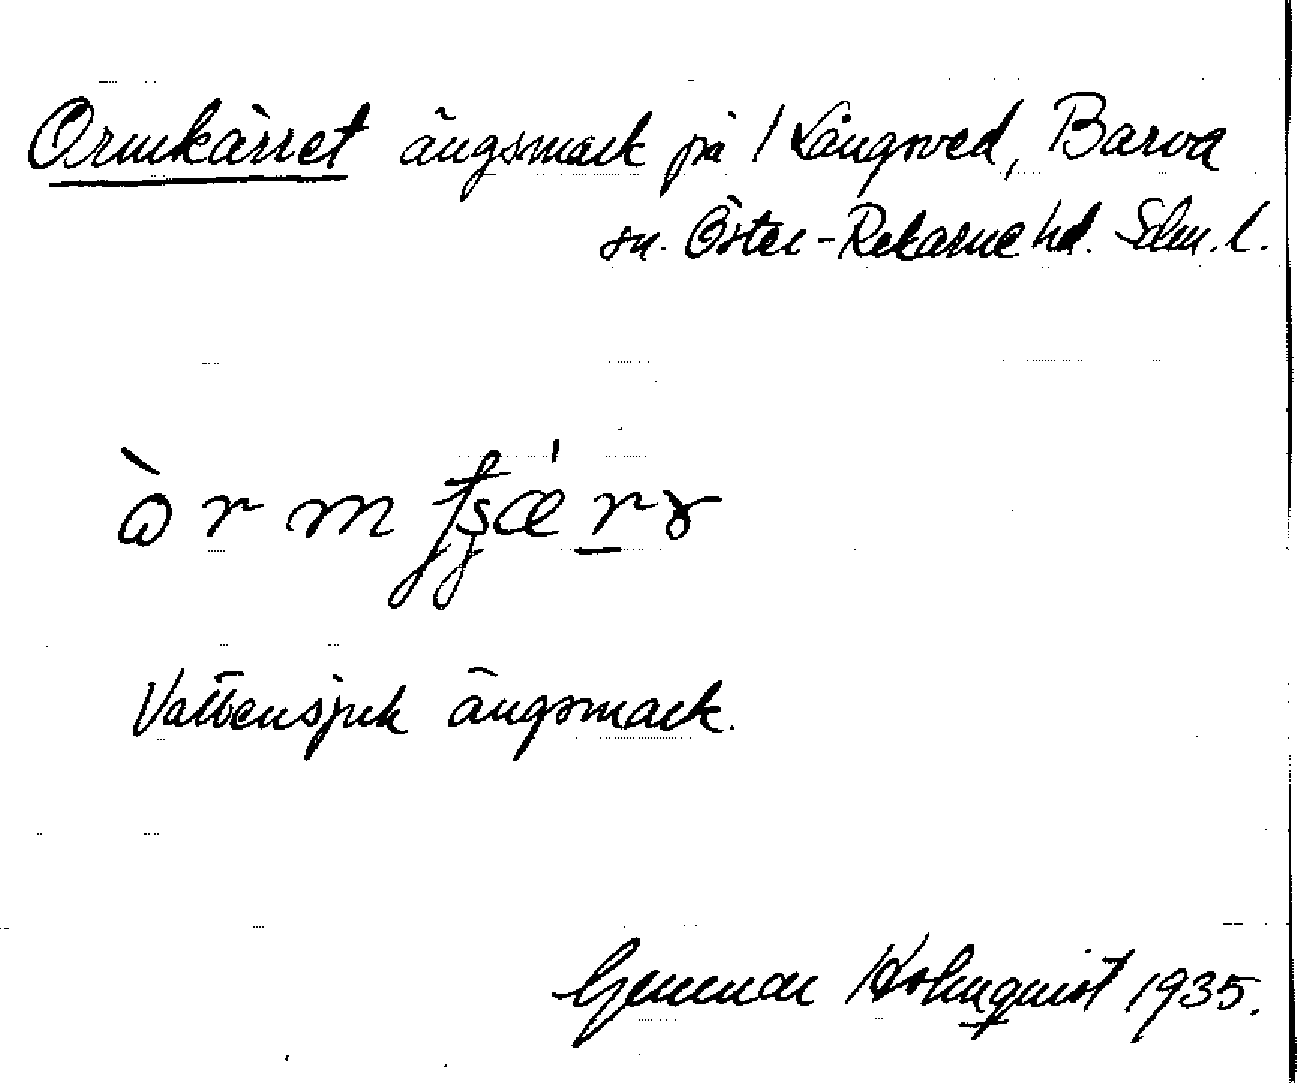 Ormkärret ängsmark på / Långsved, Barva
sn. Öster-Rekarne hd. Sdm. l.
Vattensjuk ängsmark.
Gunnar Holmquist 1935.